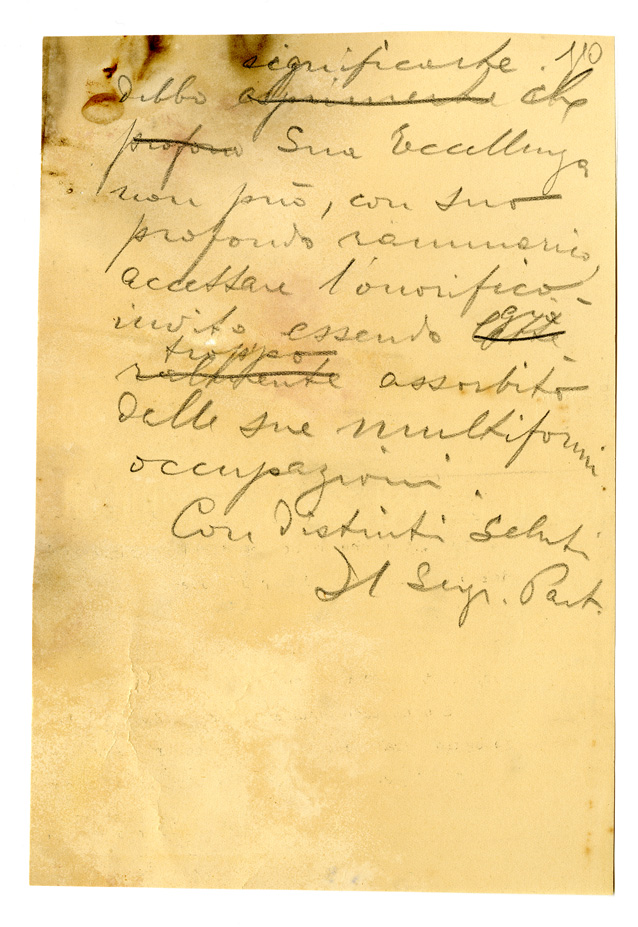 significarle . 110
debbo esprimerle che
profon Sua Eccellenza
non può, con suo
profondo rammarico,
accettare l'onorifico
invito essendo
troppo
assorbito
delle sue multiformi
occupazioni.
Con distinti saluti
Il Segr. Part.